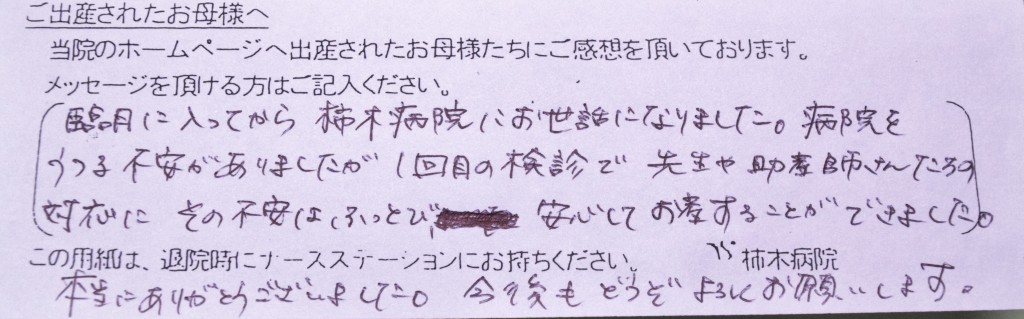 ご出産されたお母様へ
当院のホームページへ出産されたお母様たちにご感想を頂いております。
メッセージを頂ける方はご記入ください。
臨月に入ってから 柿木病院にお世話になりました。病院を
うつる不安がありましたが 1回目の検診で 先生や助産師さんたちの
対応に その不安はふっとび 安心して お産することができました。
この用紙は、退院時にナースステーションにお持ちください。 柿木病院
本当にありがとうございました。今後もどうぞよろしくお願いします。